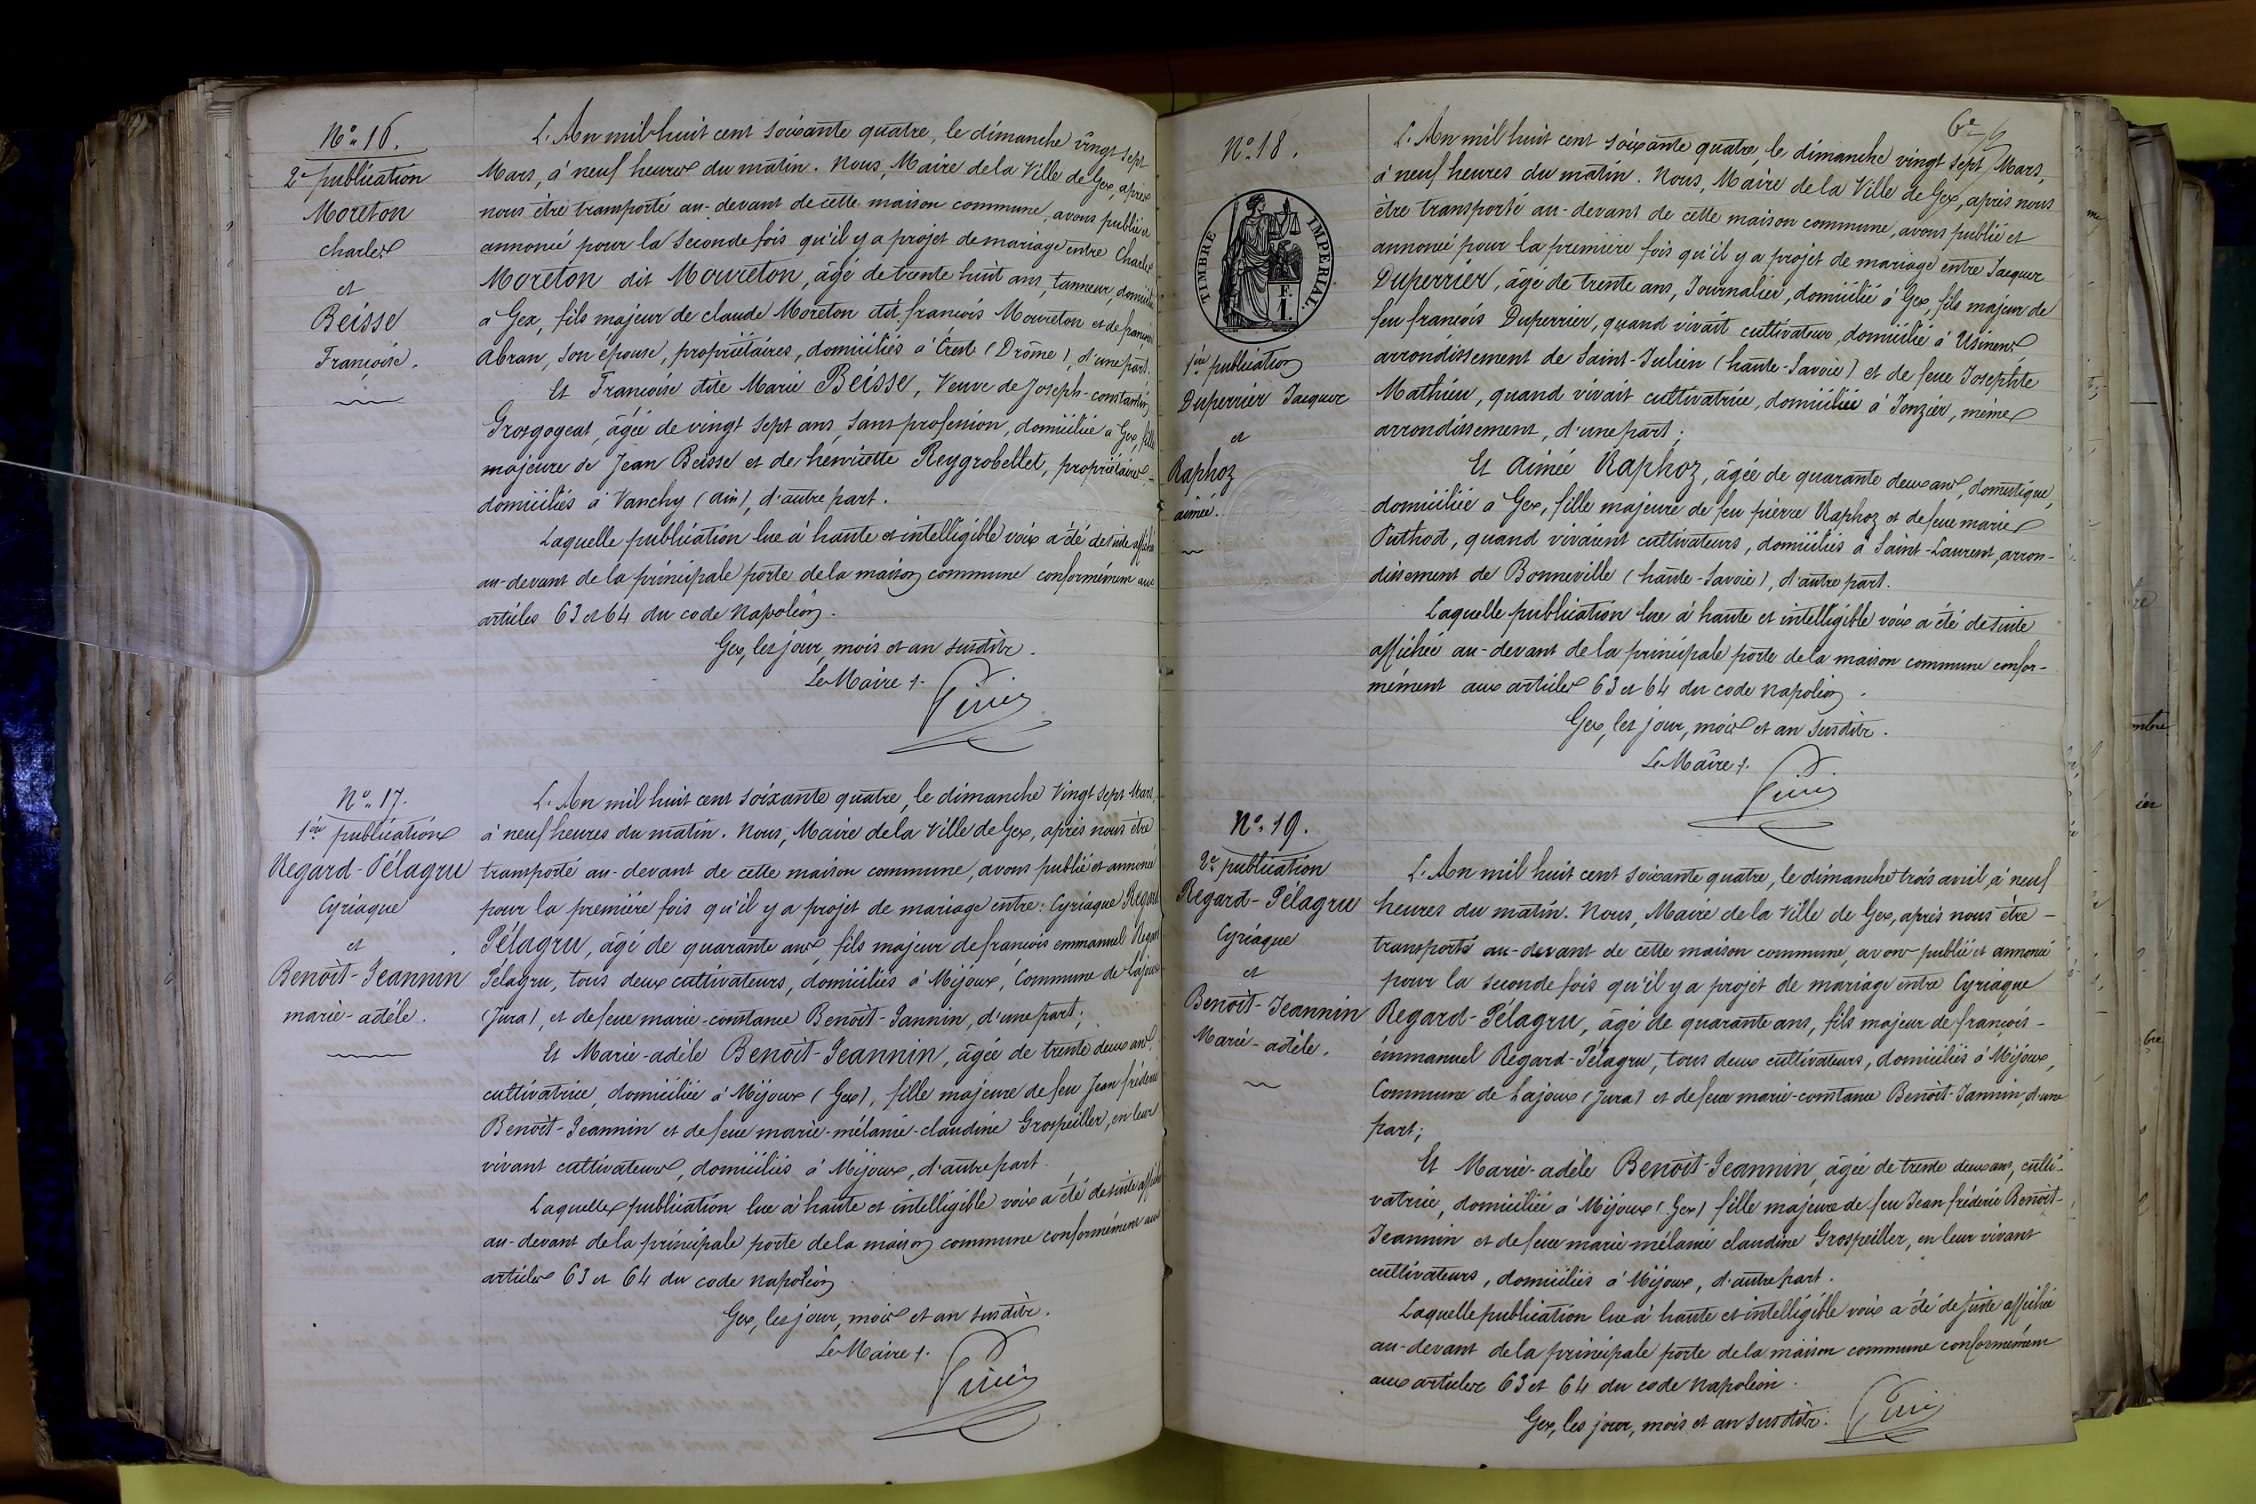 N° 16.
2e publication
Moreton
Charles
et
Beisse
Françoise.
L'An mil huit cent soixante quatre, le dimanche vingt sept
Mars, à neuf heures du matin. Nous, Maire de la Ville de Gex, après
nous être transporté au-devant de cette maison commune, avons publié et
annoncé pour la seconde fois qu'il y a projet de mariage entre Charles
Moreton dit Moureton, âgé de trente huit ans, tanneur, domicilié
à Gex, fils majeur de claude Moreton dit françois Moureton et de françoise
Abran, son épouse, propriétaires, domiciliés à Crest (Drôme), d'une part.
Et Françoise dite Marie Beisse, Veuve de Joseph-constantin
Grosgogeat, âgée de vingt sept ans, sans profession, domiciliée à Gex, fille
majeure de Jean Beisse et de henriette Reygrobellet, propriétaires
domiciliés à Vanchy (Ain), d'autre part.
Laquelle publication lue à haute et intelligible voix a été de suite affichée
au-devant de la principale porte de la maison commune conformément aux
articles 63 et 64 du code Napoléon.
Gex, les jour, mois et an susdits.
Le Maire
N° 17.
1ère publication
Regard-Pélagru
Cyriaque
et
Benoit-Jeannin
marie-adèle.
L'An mil huit cent soixante quatre, le dimanche Vingt sept Mars,
à neuf heures du matin. Nous, Maire de la Ville de Gex, après nous être
transporté au-devant de cette maison commune, avons publié et annoncé
pour la première fois qu'il y a projet de mariage entre: Cyriaque Regard
Pélagru, âgé de quarante ans, fils majeur de francois emmanuel Regard
Pélagru, tous deux cultivateurs, domiciliés à Mijoux, Commune de Lajoux
(Jura), et de feue marie-constance Benoit-Jannin, d'une part;
Et Marie-adèle Benoit-Jeannin, âgée de trente deux ans,
cultivatrice, domiciliée à Mijoux (Gex), fille majeure de feu Jean fréderic
Benoit-Jeannin et de feue marie-mélanie-claudine Grospeiller, en leur
vivant cultivateurs, domiciliés à Mijoux, d'autre part.
Laquelle publication lue à haute et intelligible voix a été de suite affichée
au-devant de la principale porte de la maison commune conformément aux
articles 63 et 64 du code Napoléon
Gex, les jour, mois et an susdits.
Le Maire
N° 18.
TIMBRE IMPERIAL
1ère publication
Duperrier Jacques
et
Raphoz
aimée.
L'An mil huit cent soixante quatre, le dimanche vingt sept Mars,
à neuf heures du matin. Nous, Maire de la Ville de Gex, après nous
être transporté au-devant de cette maison commune, avons publié et
annoncé pour la première fois qu'il y a projet de mariage entre Jacques
Duperrier, âgé de trente ans, Journalier, domicilié à Gex, fils majeur de
feu françois Duperrier, quand vivait cultivateur, domicilié à Usinens
arrondissement de Saint-Julien (haute-Savoie) et de feue Josephte
Mathieu, quand vivait cultivatrice, domiciliée à Jonzier, même
arrondissement, d'une part;
Et Aimée Raphoz, âgée de quarante deux ans, domestique,
domiciliée à Gex, fille majeure de feu pierre Raphoz et de feue marie
Puthod, quand vivaient cultivateurs, domiciliés à Saint-Laurent, arron-
dissement de Bonneville (haute-Savoie), d'autre part.
Laquelle publication lue à haute et intelligible voix a été de suite
affichée au-devant de la principale porte de la maison commune confor-
mément aux articles 63 et 64 du code Napoléon.
Gex, les jour, mois et an susdits.
Le Maire
N° 19.
2e publication
Regard-Pélagru
Cyriaque
et
Benoit-Jeannin
Marie-adèle.
L'An mil huit cent soixante quatre, le dimanche trois avril, à neuf
heures du matin. Nous, Maire de la Ville de Gex, après nous être
transporté au-devant de cette maison commune, avons publié et annoncé
pour la seconde fois qu'il y a projet de mariage entre Cyriaque
Regard-Pélagru, âgé de quarante ans, fils majeur de françois-
émmanuel Regard-Pélagru, tous deux cultivateurs, domiciliés à Mijoux,
Commune de Lajoux (Jura) et de feue marie-constance Benoit-Jannin, d'une
part;
Et Marie-adèle Benoit-Jeannin, âgée de trente deux ans, culti-
vatrice, domiciliée à Mijoux (Gex) fille majeure de feu Jean fréderic Benoit-
Jeannin et de feue marie mélanie claudine Grospeiller, en leur vivant
cultivateurs, domiciliés à Mijoux, d'autre part.
Laquelle publication lue à haute et intelligible voix a été de suite affichée
au-devant de la principale porte de la maison commune conformément
aux articles 63 et 64 du code Napoléon.
Gex, les jour, mois et an susdits.